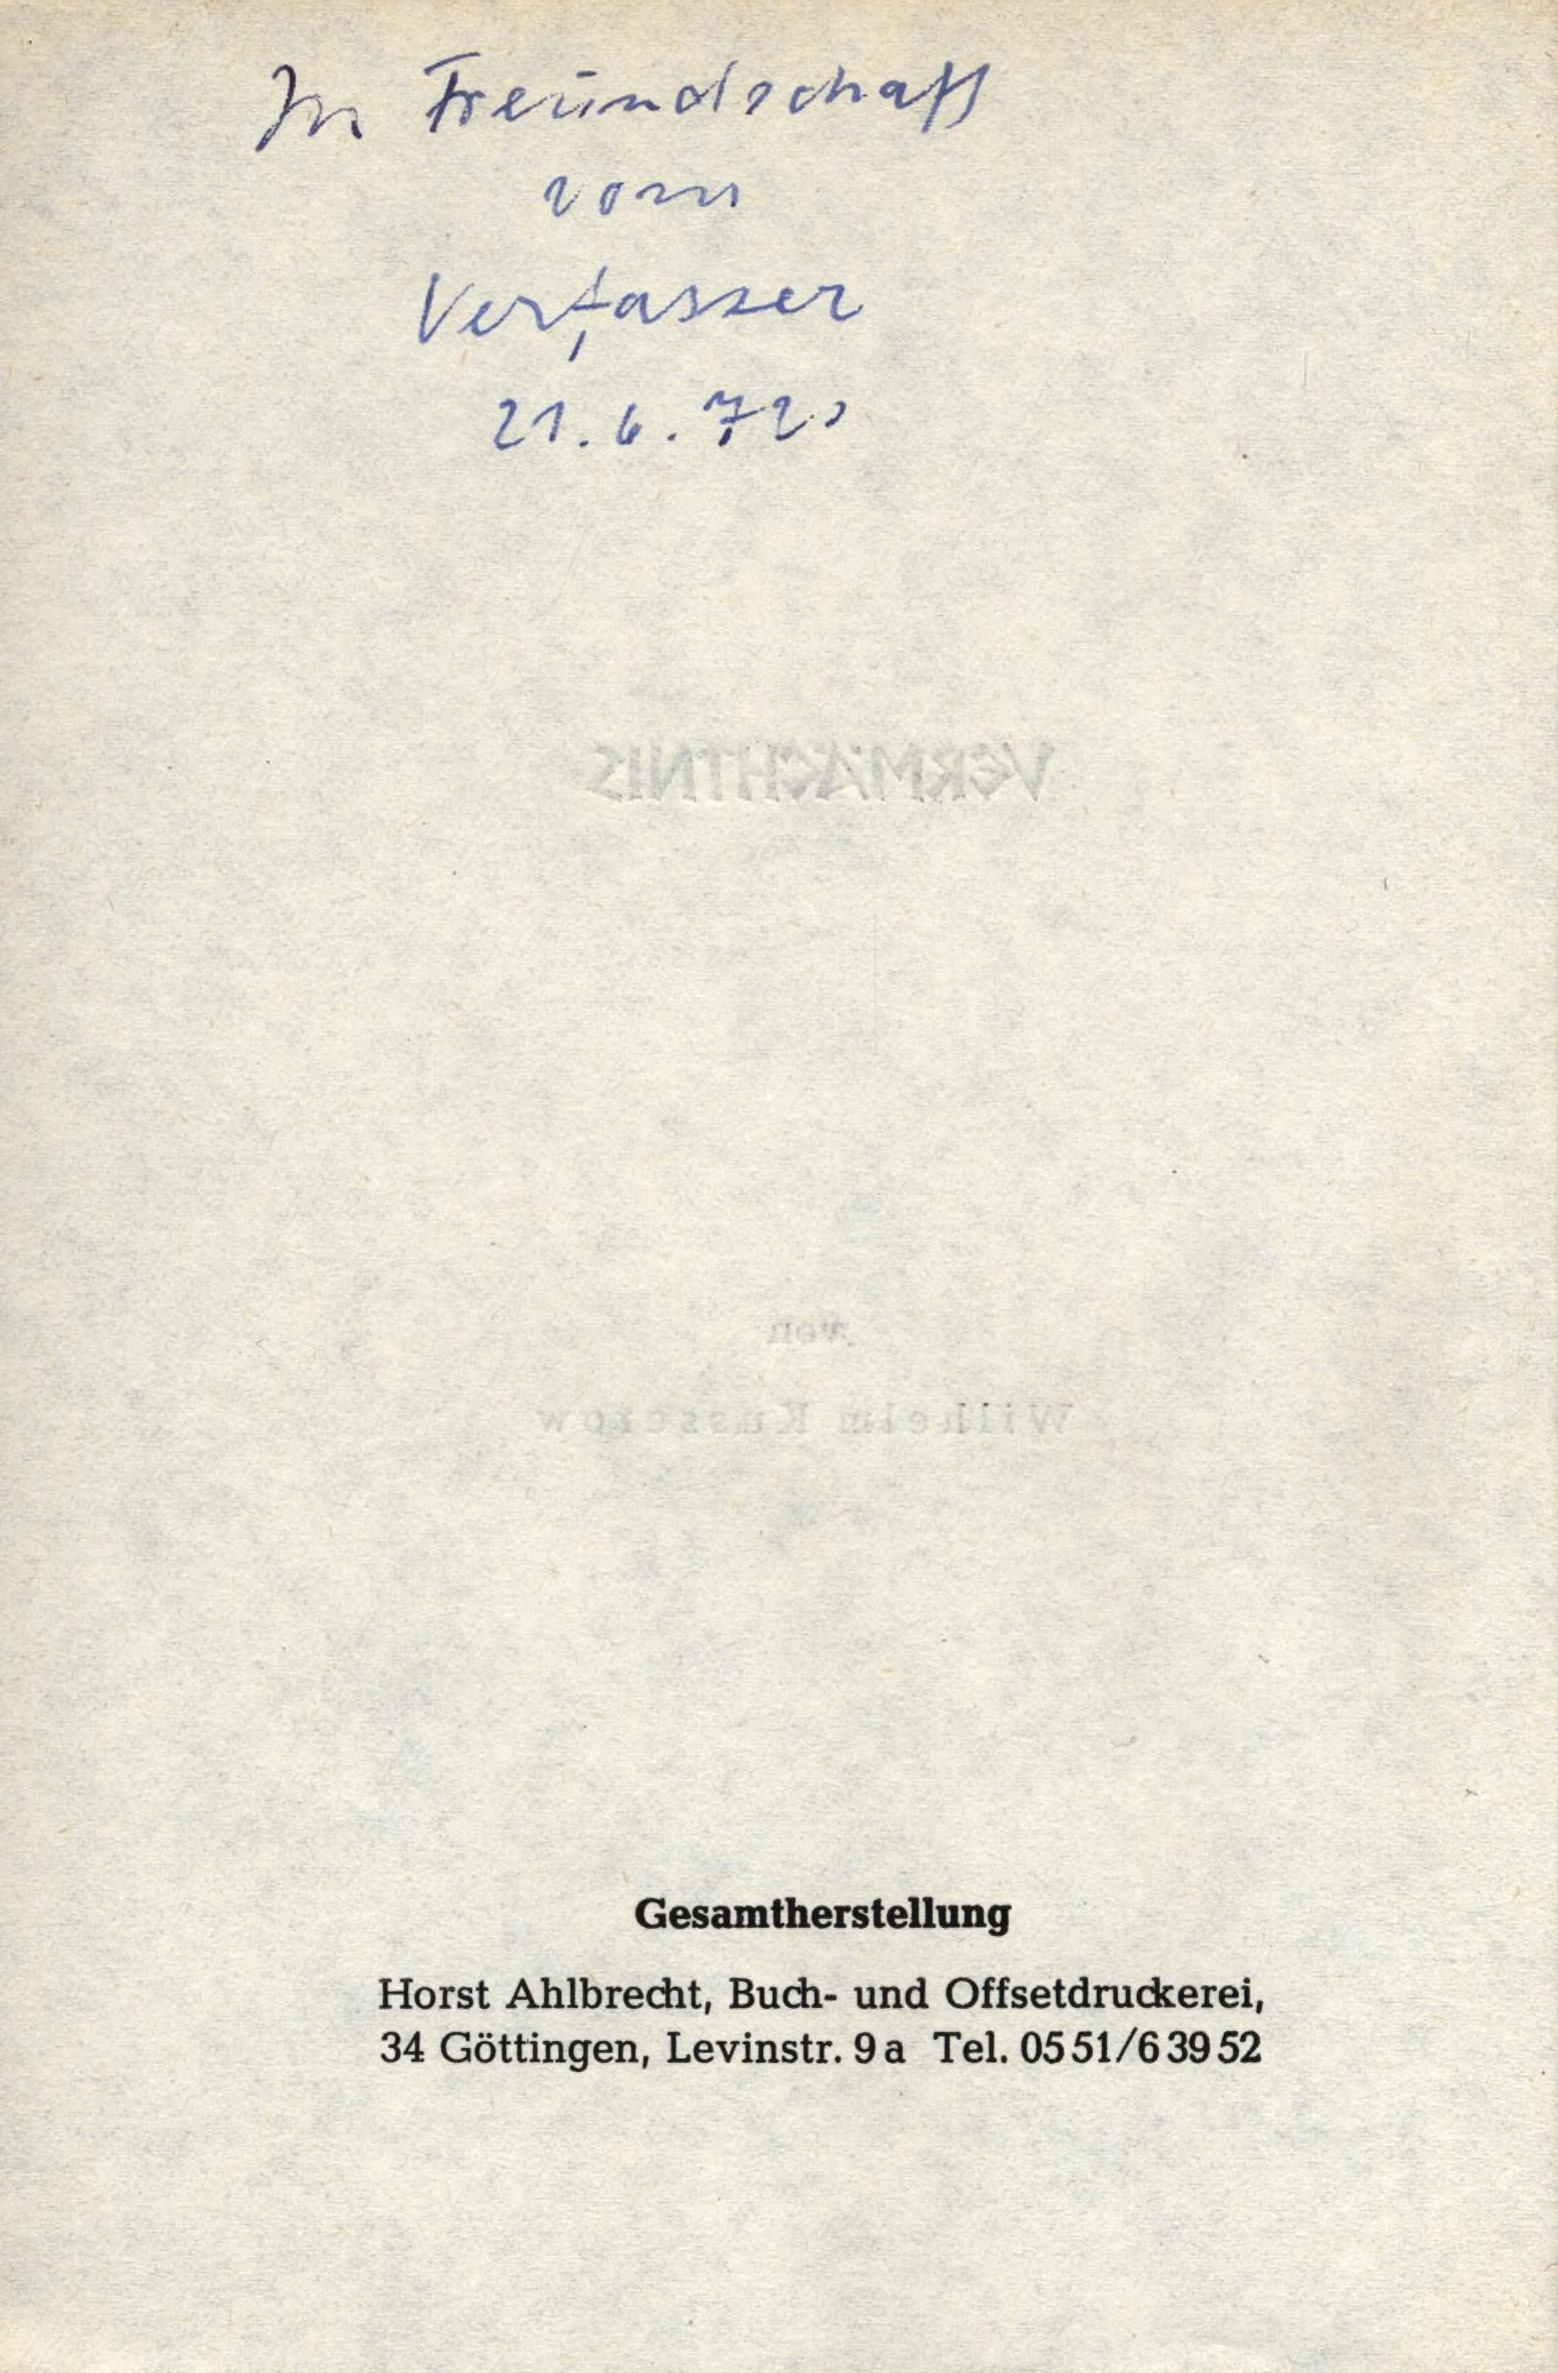 In Freundschaft
vom
Verfasser
21.6.72
VERMÄCHTNIS
von
Wilhelm Kusserow
Gesamtherstellung
Horst Ahlbrecht, Buch- und Offsetdruckerei,
34 Göttingen, Levinstr. 9 a Tel. 05 51/6 39 52